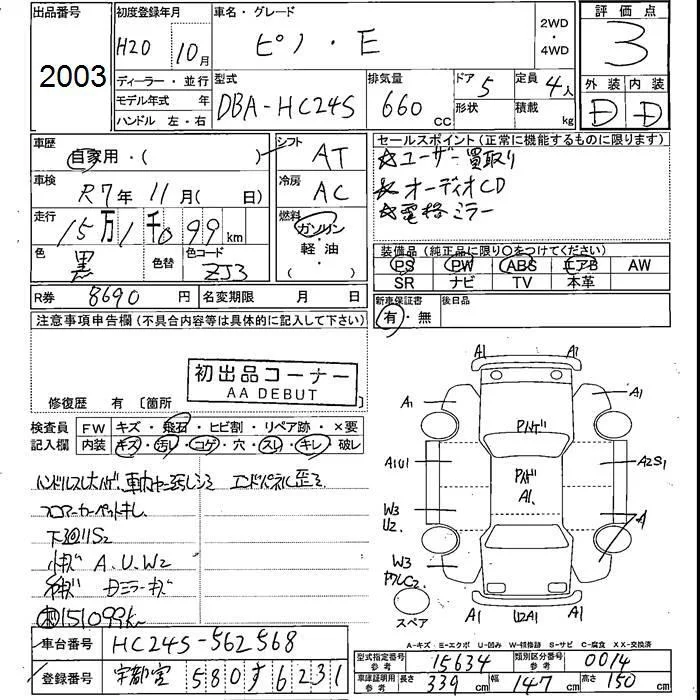 出品番号
2003
初度登録年月
H20 10月
車名・グレード
ピノ・E
2WD
・
4WD
評価点
3
外装 内装
D D
ディーラー・並行
モデル年式 年
ハンドル 左・右
型式
DBA-HC24S
排気量
660
CC
ドア 5
形状
定員 4人
積載
kg
車歴
自家用・( )
車検
R7年 11月( 日)
走行
15万1千099 km
色
黒
色替
色コード
ZJ3
シフト
AT
冷房
AC
燃料
ガソリン
軽・油
・
( )
セールスポイント(正常に機能するものに限ります)
☆ユーザー買取り
☆オーディオCD
☆電格ミラー
装備品(純正品に限り○をつけてください)
PS PW ABS エアB AW
SR ナビ TV 本革
新車保証書
有・無
後日品
R券 8690 円
名変期限 月 日
注意事項申告欄(不具合内容等は具体的に記入して下さい)
初出品コーナー
AA DEBUT
修復歴 有 〔箇所
検査員
記入欄
FW キズ・飛石・ヒビ割・リペア跡・×要
内装 キズ・汚レ・コゲ・穴・スレ・キレ・破レ
ハンドルスレ大ハゲ、車内ヤニ汚レシミ エンドパネル歪ミ
フロアーカーペットキレ
下廻りS2
A、U、W2
ミラーキズ
151099k
車台番号 HC24S-562568
登録番号 宇都宮 580 す 6231
A1 A1
A1 A1
Pハゲ
Pハゲ
A1
A1U1
A2S1
W3
U2
A
W3
C2
スペア
U2A1 A1
A-キズ E-エクボ U-凹み W-補修跡 S-サビ C-腐食 XX-交換済
型式指定番号
参考
15634
類別区分番号
参考
0014
車庫証明用
参考
長さ 339 cm 幅 147 cm 高さ 150 cm